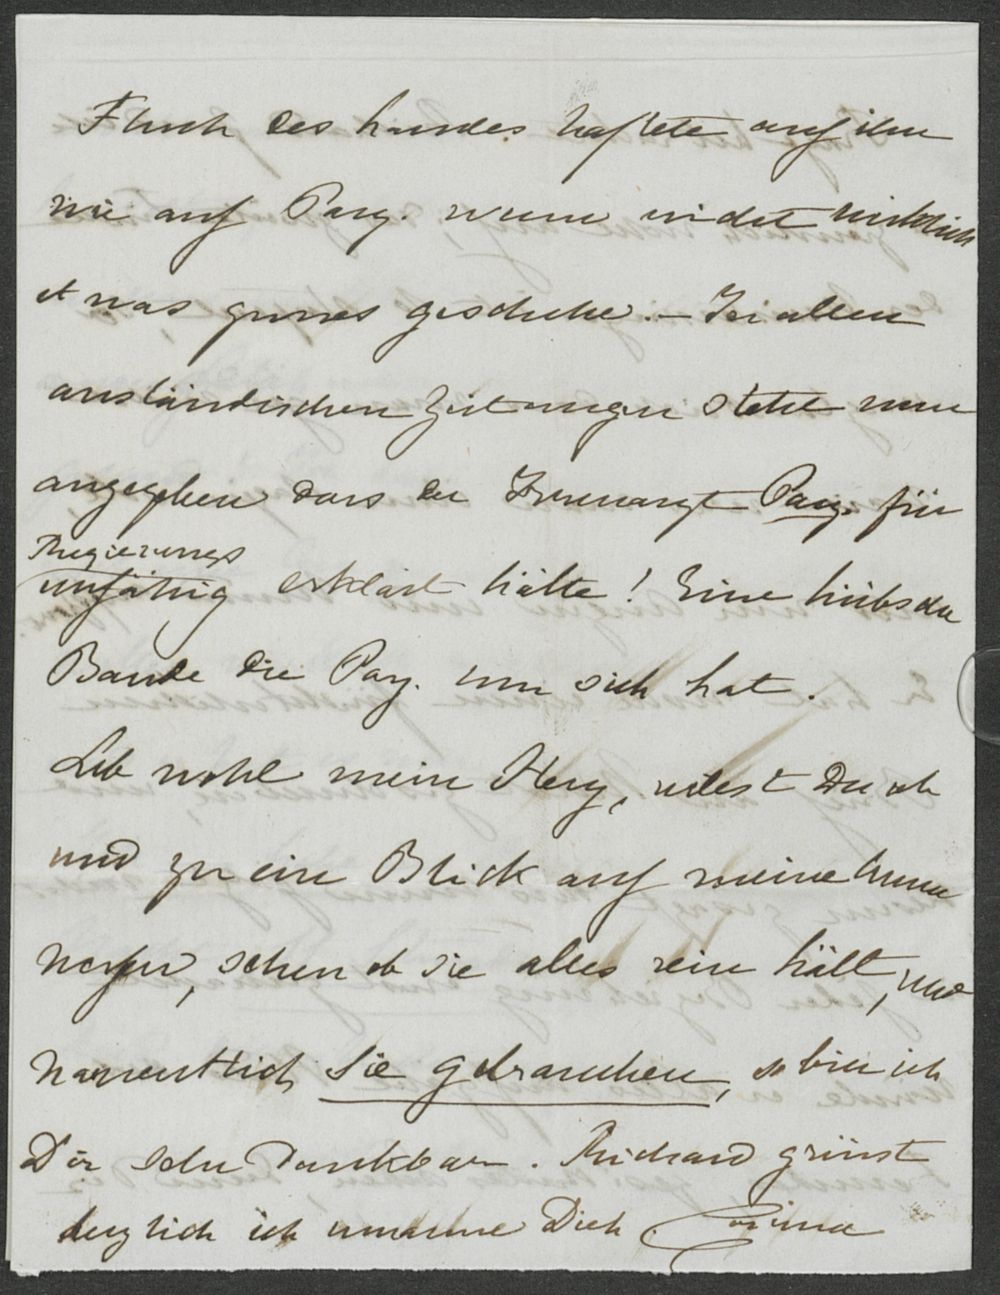 Fluch des Landes haftete auf ihm
wie auf Parz. wenn nicht wirklich
etwas grosses geschehe. — In allen
ausländischen Zeitungen steht nun
angegeben dass der Irrenarzt Parz. für
Regierungs
unfähig erklärt hätte! Eine hübsche
Bande die Parz. um sich hat.
Leb wohl mein Herz, willst Du ab
und zu ein Blick auf meine Anna
werfen, sehen ob sie alles rein hält, und
namentlich sie gebrauchen, so bin ich
Dir sehr dankbar. Richard grüsst
herzlich ich umarme Dich Cosima